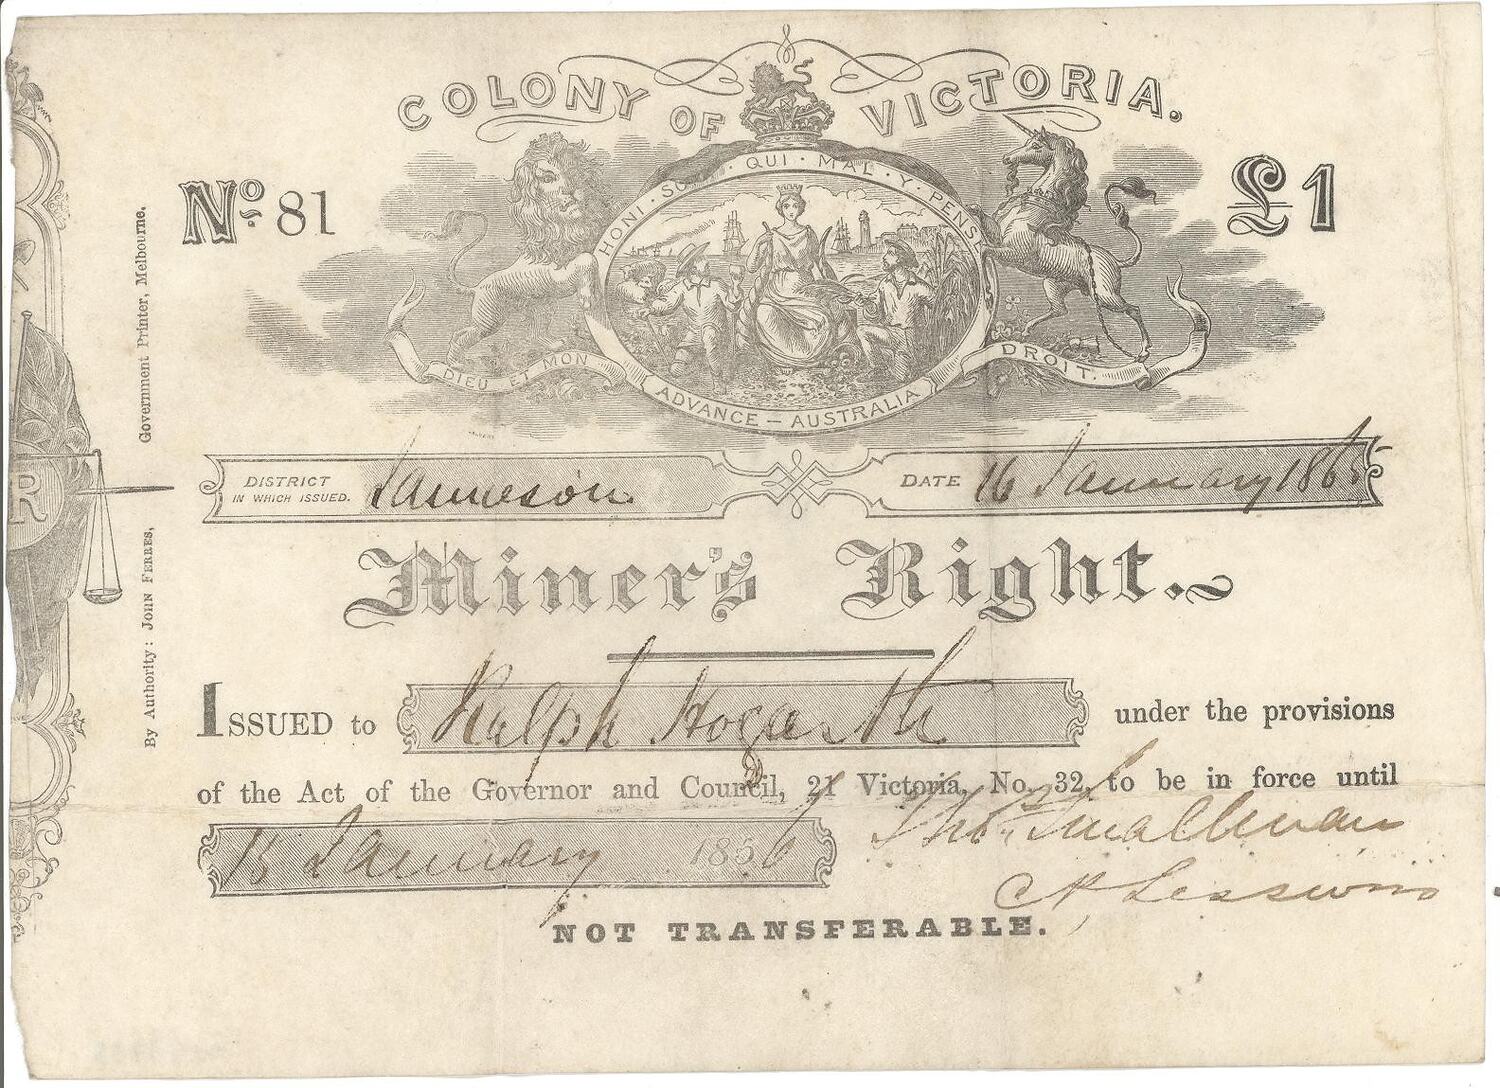 COLONY OF VICTORIA.
No. 81
£1
HONI · SOIT · QUI · MAL · Y · PENSE
DIEU ET MON
DROIT.
ADVANCE – AUSTRALIA
DISTRICT
IN WHICH ISSUED.
Jamieson
DATE 16 January 1865
Miner's Right.
ISSUED to Ralph Hogarth under the provisions
of the Act of the Governor and Council, 21 Victoria, No. 32, to be in force until
15 January 1866
NOT TRANSFERABLE.
By Authority: JOHN FERRES, Government Printer, Melbourne.
R